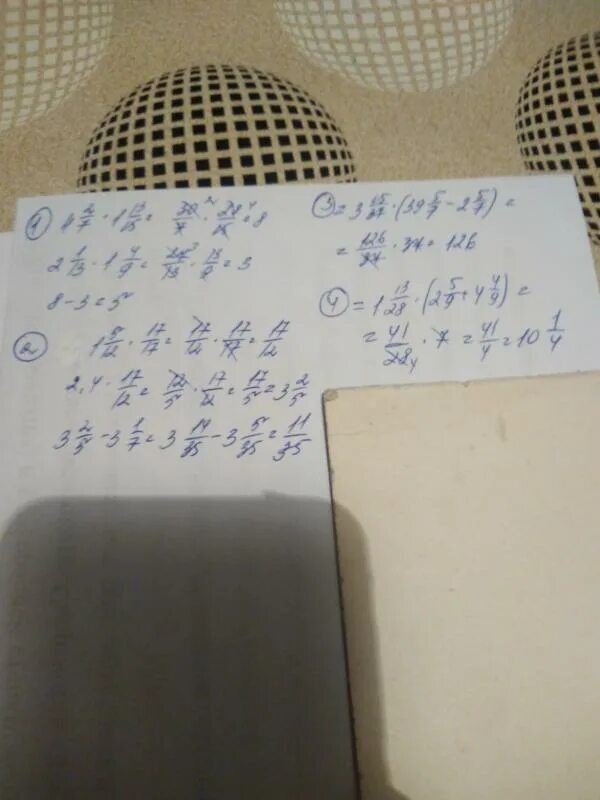 ① 4 2/7 · 1 13/15 = 30/7 · 28/15 = 8
2 1/13 · 1 4/9 = 27/13 · 13/9 = 3
8 - 3 = 5
② 1 5/12 · 17/17 = 17/12 · 17/17 = 17/12
2,4 · 17/12 = 12/5 · 17/12 = 17/5 = 3 2/5
3 2/5 - 3 1/7 = 3 14/35 - 3 5/35 = 11/35
③ = 3 15/37 · (39 5/7 - 2 5/7) =
= 126/37 · 37 = 126
④ = 1 13/28 · (2 5/9 + 4 4/9) =
= 41/28 4 · 7 = 41/4 = 10 1/4